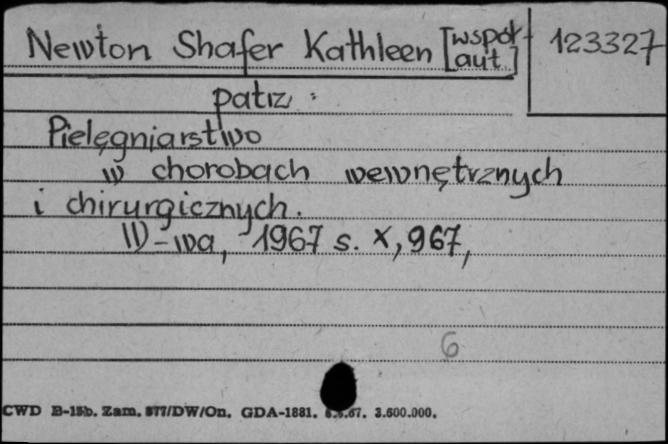 Newton Shafer Kathleen [współ-
aut.]
123327
patrz:
Pielęgniarstwo
w chorobach wewnętrznych
i chirurgicznych.
W-wa, 1967 s. X, 967,
6
CWD B-15b. Zam. 877/DW/On. GDA-1881. 67. 3.600.000.